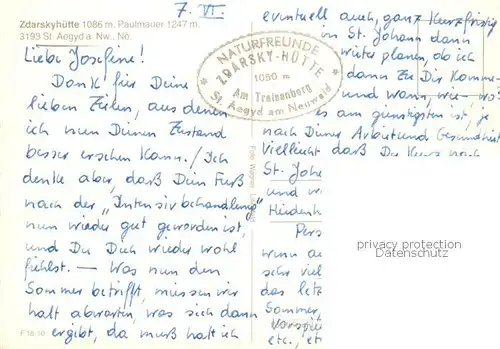 7. VI.
Zdarskyhütte 1086 m. Paulmauer 1247 m.
3193 St. Aegyd a. Nw., Nö.
Liebe Josefine!
Dank für Deine
lieben Zeilen, aus denen
ich nun Deinen Zustand
besser ersehen kann. / Ich
denke aber, daß Dein Fuß
nach der "Intensivbehandlung"
nun wieder gut geworden ist,
und Du Dich wieder wohl
fühlst. — Was nun den
Sommer betrifft, müssen wir
halt abwarten, was sich dann
ergibt, da muß halt ich
NATURFREUNDE
ZDARSKY-HÜTTE
1050 m
Am Traisenberg
St. Aegyd am Neuwald
eventuell auch, ganz kurzfristig
St. Johann dann
weiter planen, ob ich
dann zu Dir komme
und wann, wie - wo?
es am günstigsten ist, je
nach Deiner Arbeit und Gesundheit
Vielleicht daß Du kurz nach
St. Joha
und w
Heidenh
Pers
wenn au
sehr viel
das letz
Sommer,
Vorspie
etc., et
privacy protection
Datenschutz
Foto